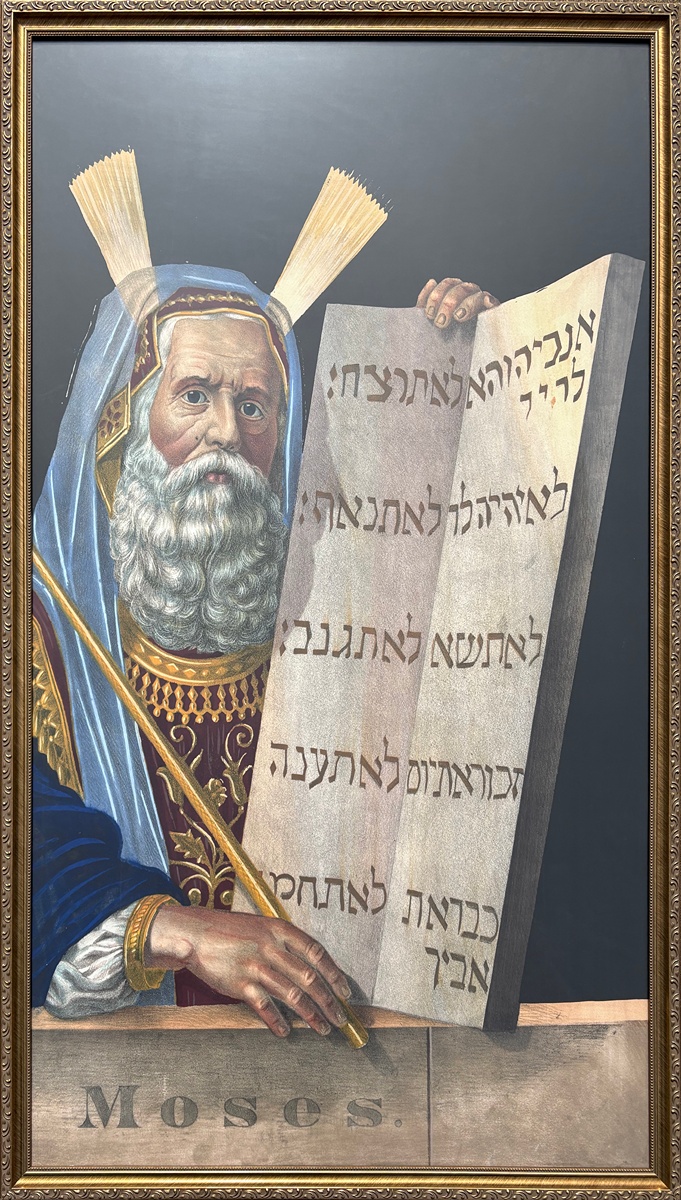 אנכי יהוה א
להיך
לא יהיה לך
לא תשא
זכור את יום
כבד את
אביך
לא תרצח:
לא תנאף:
לא תגנב:
לא תענה
לא תחמ
Moses.